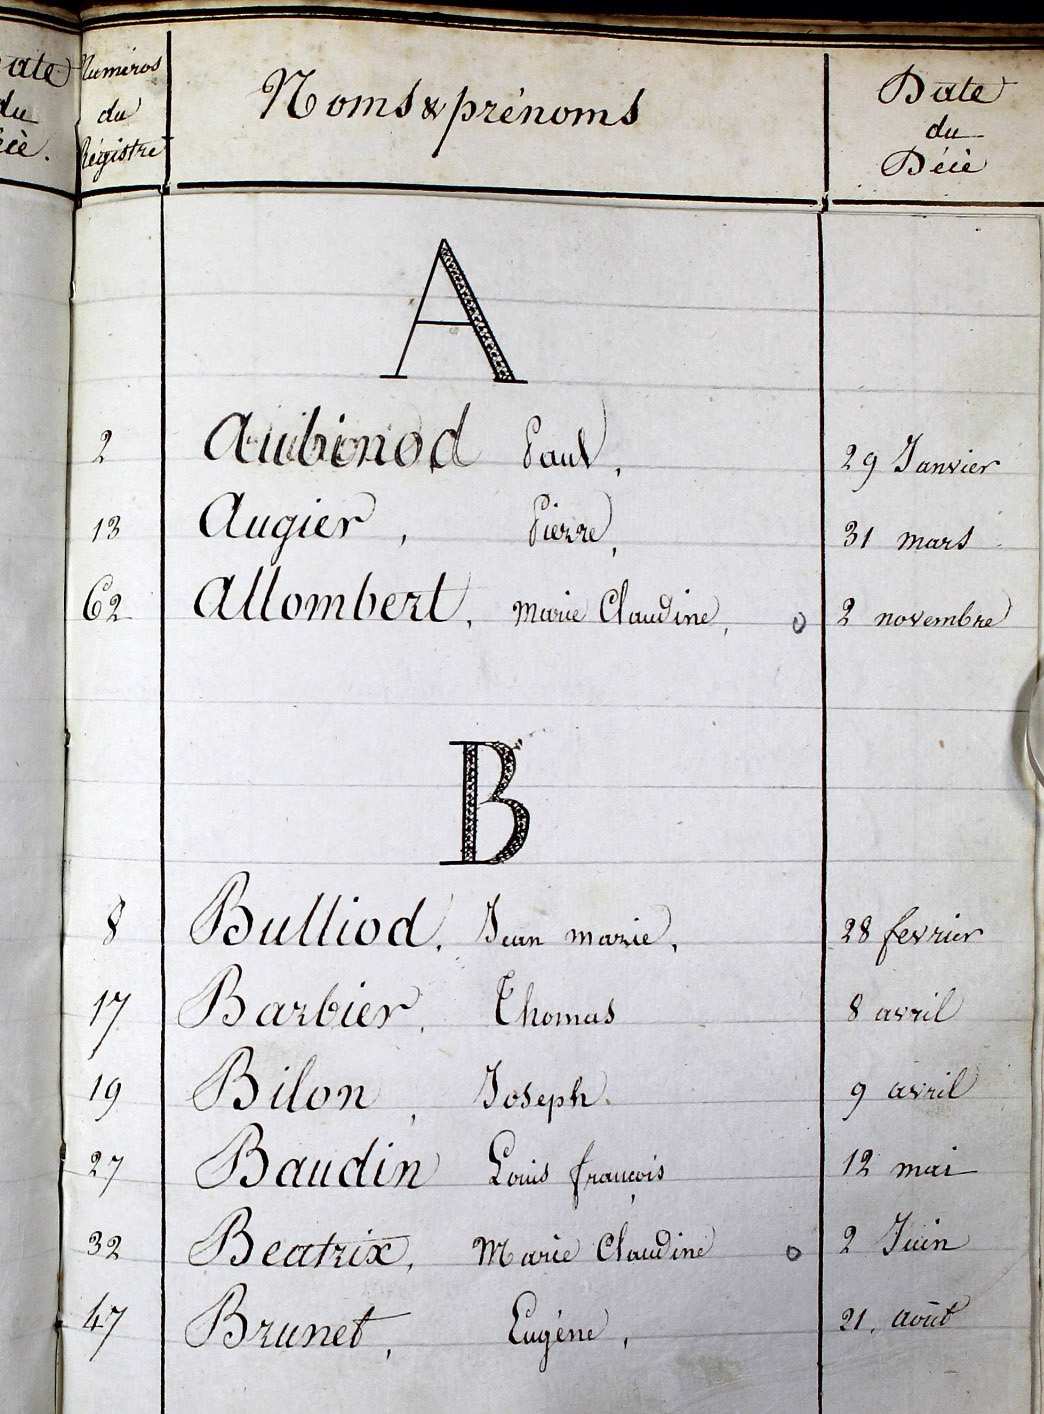 ate
du
Numéros
du
Régistre
Noms & prénoms
Date
du
Décè
A
2 Aubinod Paul, 29 Janvier
13 Augier, Pierre, 31 mars
62 Allombert, Marie Claudine, o 2 novembre
B
8 Bulliod, Jean marie, 28 fevrier
17 Barbier, Thomas 8 avril
19 Bilon, Joseph. 9 avril
27 Baudin Louis françois 12 mai
32 Beatrix, Marie Claudine o 2 Juin
47 Brunet, Eugéne, 21, août